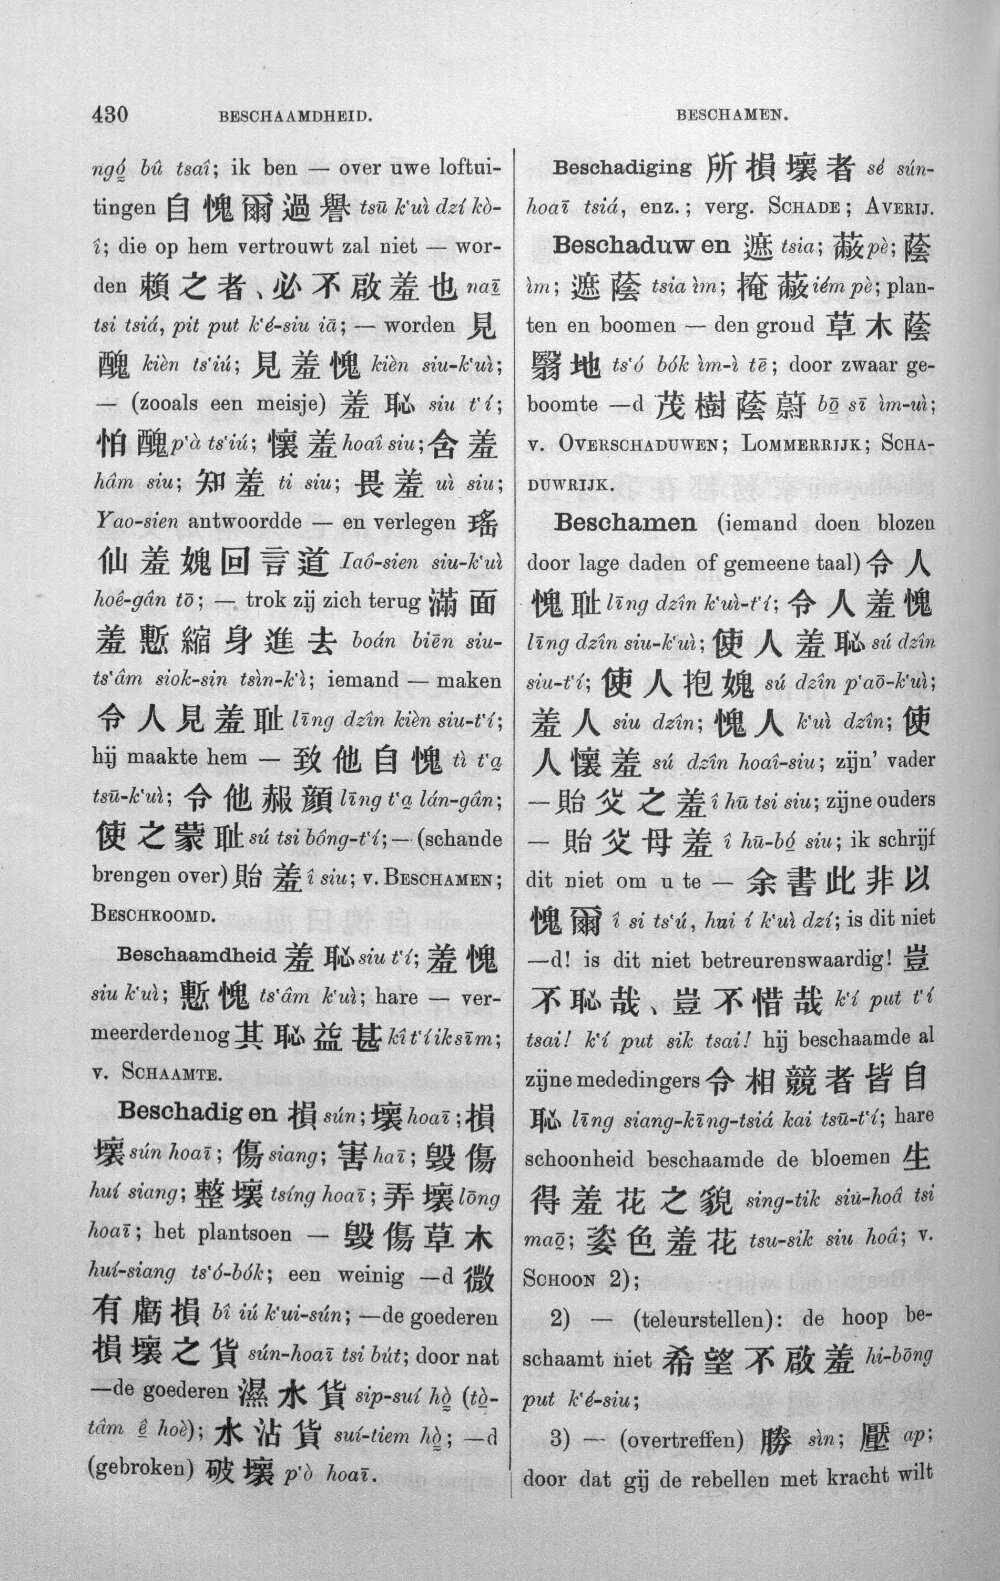 430 BESCHAAMDHEID. BESCHAMEN.
ngó̤ bû tsaî; ik ben — over uwe loftui-
tingen 自愧爾過譽 tsū k‘uì dzí kò-
î; die op hem vertrouwt zal niet — wor-
den 賴之者、必不啟羞也 naī
tsi tsiá, pit put k‘é-siu iā; — worden 見
醜 kièn ts‘iú; 見羞愧 kièn siu-k‘uì;
— (zooals een meisje) 羞恥 siu t‘í;
怕醜 p‘à ts‘iú; 懷羞 hoaî siu; 含羞
hâm siu; 知羞 ti siu; 畏羞 uì siu;
Yao-sien antwoordde — en verlegen 瑤
仙羞媿回言道 Iaô-sien siu-k‘uì
hoê-gân tō; — trok zij zich terug 滿面
羞慙縮身進去 boán biēn siu-
ts‘âm siok-sin tsìn-k‘ì; iemand — maken
令人見羞耻 līng dzîn kièn siu-t‘í;
hij maakte hem — 致他自愧 tì t‘a̤
tsū-k‘uì; 令他赧顔 līng t‘a̤ lán-gân;
使之蒙耻 sú tsi bông-t‘í; — (schande
brengen over) 貽羞 î siu; v. BESCHAMEN;
BESCHROOMD.
Beschaamdheid 羞恥 siu t‘í; 羞愧
siu k‘uì; 慙愧 ts‘âm k‘uì; hare — ver-
meerderde nog 其恥益甚 kî t‘í ik sīm;
v. SCHAAMTE.
Beschadigen 損 sún; 壞 hoaī; 損
壞 sún hoaī; 傷 siang; 害 haī; 毁傷
huí siang; 整壞 tsíng hoaī; 弄壞 lōng
hoaī; het plantsoen — 毀傷草木
huí-siang ts‘ó-bók; een weinig —d 微
有虧損 bî iú k‘ui-sún; —de goederen
損壞之貨 sún-hoaī tsi bút; door nat
—de goederen 濕水貨 sip-suí hò̤ (tò̤-
tâm ê̤ hoè); 水沾貨 suí-tiem hò̤; —d
(gebroken) 破壞 p‘ò hoaī.
Beschadiging 所損壞者 sé sún-
hoaī tsiá, enz.; verg. SCHADE; AVERIJ.
Beschaduwen 遮 tsia; 蔽 pè; 蔭
ìm; 遮蔭 tsia ìm; 掩蔽 iém pè; plan-
ten en boomen — den grond 草木蔭
翳地 ts‘ó bók ìm-ì tē; door zwaar ge-
boomte —d 茂樹蔭蔚 bō̤ sī ìm-uì;
v. OVERSCHADUWEN; LOMMERRIJK; SCHA-
DUWRIJK.
Beschamen (iemand doen blozen
door lage daden of gemeene taal) 令人
愧耻 līng dzîn k‘uì-t‘í; 令人羞愧
līng dzîn siu-k‘uì; 使人羞恥 sú dzîn
siu-t‘í; 使人抱媿 sú dzîn p‘aō-k‘uì;
羞人 siu dzîn; 愧人 k‘uì dzîn; 使
人懷羞 sú dzîn hoaî-siu; zijn’ vader
— 貽父之羞 î hū tsi siu; zijne ouders
— 貽父母羞 î hū-bó̤ siu; ik schrijf
dit niet om u te — 余書此非以
愧爾 î si ts‘ú, hui í k‘uì dzí; is dit niet
—d! is dit niet betreurenswaardig! 豈
不恥哉、豈不惜哉 k‘í put t‘í
tsai! k‘í put sik tsai! hij beschaamde al
zijne mededingers 令相競者皆自
恥 līng siang-kīng-tsiá kai tsū-t‘í; hare
schoonheid beschaamde de bloemen 生
得羞花之貌 sing-tik siu-hoâ tsi
maō̤; 姿色羞花 tsu-sik siu hoâ; v.
SCHOON 2);
2) — (teleurstellen): de hoop be-
schaamt niet 希望不啟羞 hi-bōng
put k‘é-siu;
3) — (overtreffen) 勝 sìn; 壓 ap;
door dat gij de rebellen met kracht wilt